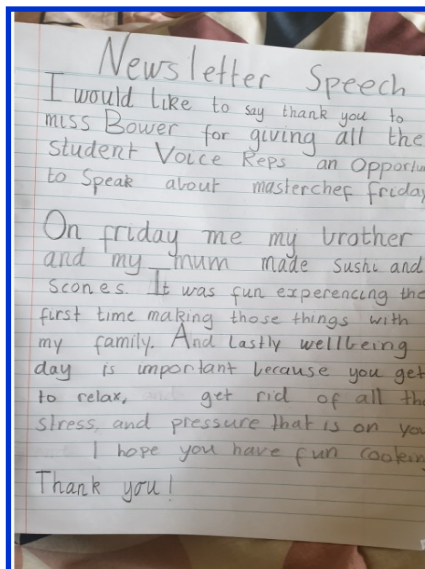 Newsletter Speech
I would like to say thank you to
miss Bower for giving all the
Student Voice Reps an Opportu
to Speak about masterchef friday
On friday me my brother
and my mum made sushi and
Scones. It was fun experencing the
first time making those things with
my family. And Lastly wellbeing
day is important because you get
to relax, and get rid of all the
stress, and pressure that is on you
I hope you have fun cooking
Thank you!